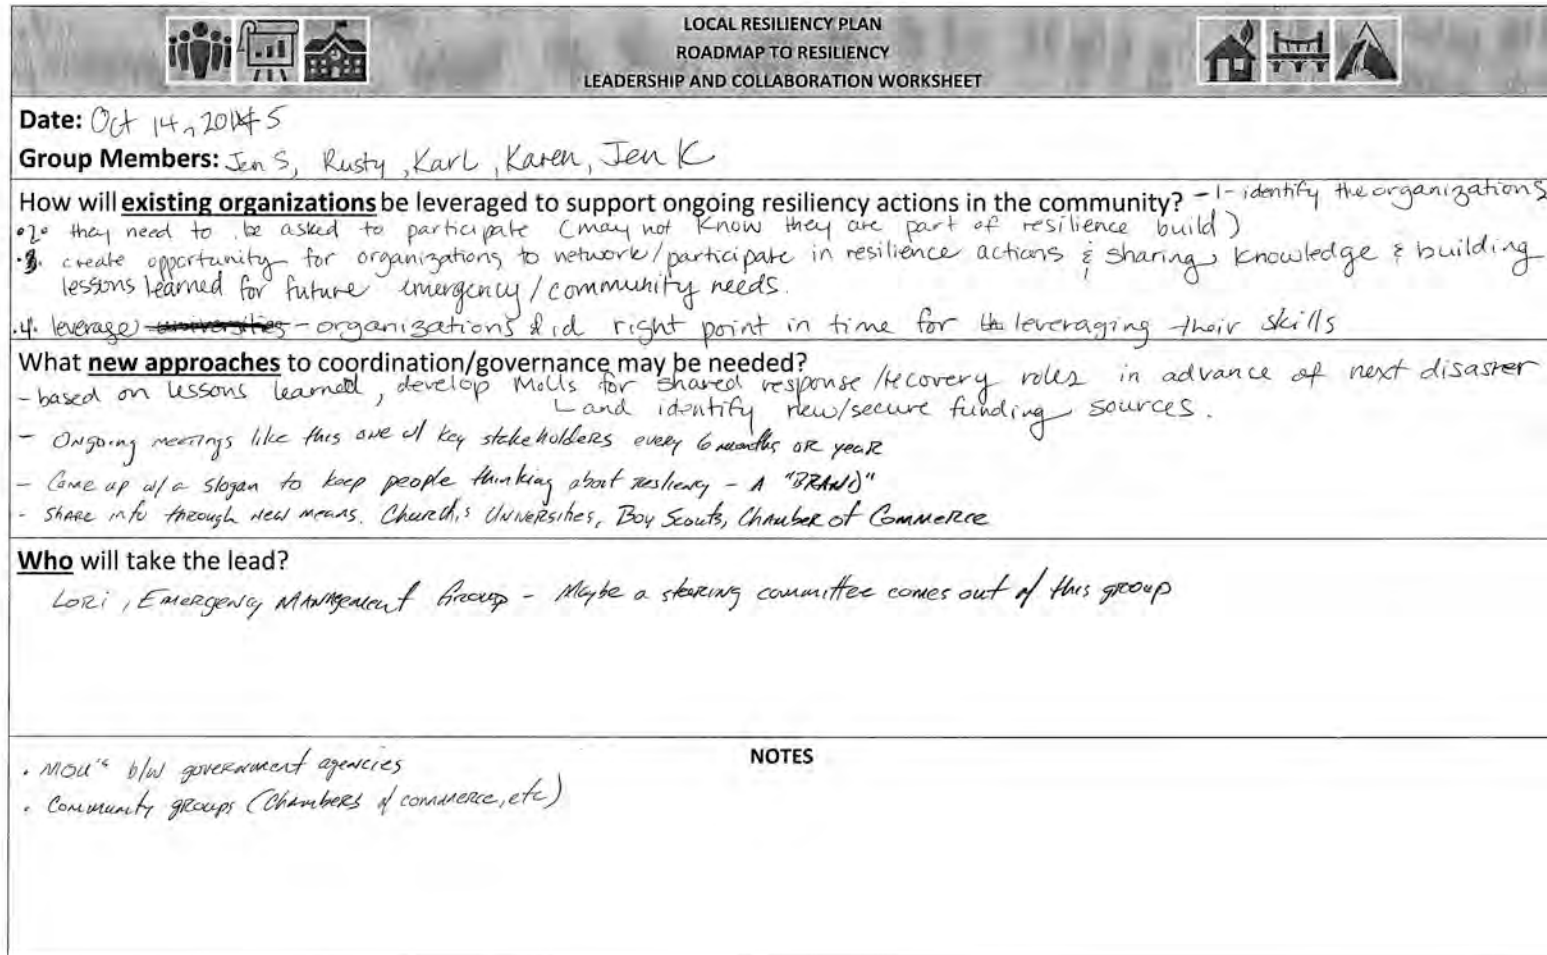 LOCAL RESILIENCY PLAN
ROADMAP TO RESILIENCY
LEADERSHIP AND COLLABORATION WORKSHEET
Date: Oct 14, 2015
Group Members: Jen S, Rusty, Karl, Karen, Jen K
How will existing organizations be leveraged to support ongoing resiliency actions in the community? - 1- identify the organizations
•2• they need to be asked to participate (may not know they are part of resilience build)
•3. create opportunity for organizations to network/participate in resilience actions & sharing knowledge & building
lessons learned for future emergency/community needs.
.4. leverage universities - organizations & id right point in time for the leveraging their skills
What new approaches to coordination/governance may be needed?
- based on lessons learned, develop MOUs for shared response/recovery roles in advance of next disaster
and identify new/secure funding sources.
- Ongoing meetings like this one w/ key stakeholders every 6 months or year
- Come up w/ a slogan to keep people thinking about resiliency - A "BRAND"
- Share info through new means. Church's Universities, Boy Scouts, Chamber of Commerce
Who will take the lead?
Lori, Emergency Management Group - Maybe a steering committee comes out of this group
NOTES
• MOU's b/w government agencies
• Community groups (Chambers of commerce, etc)